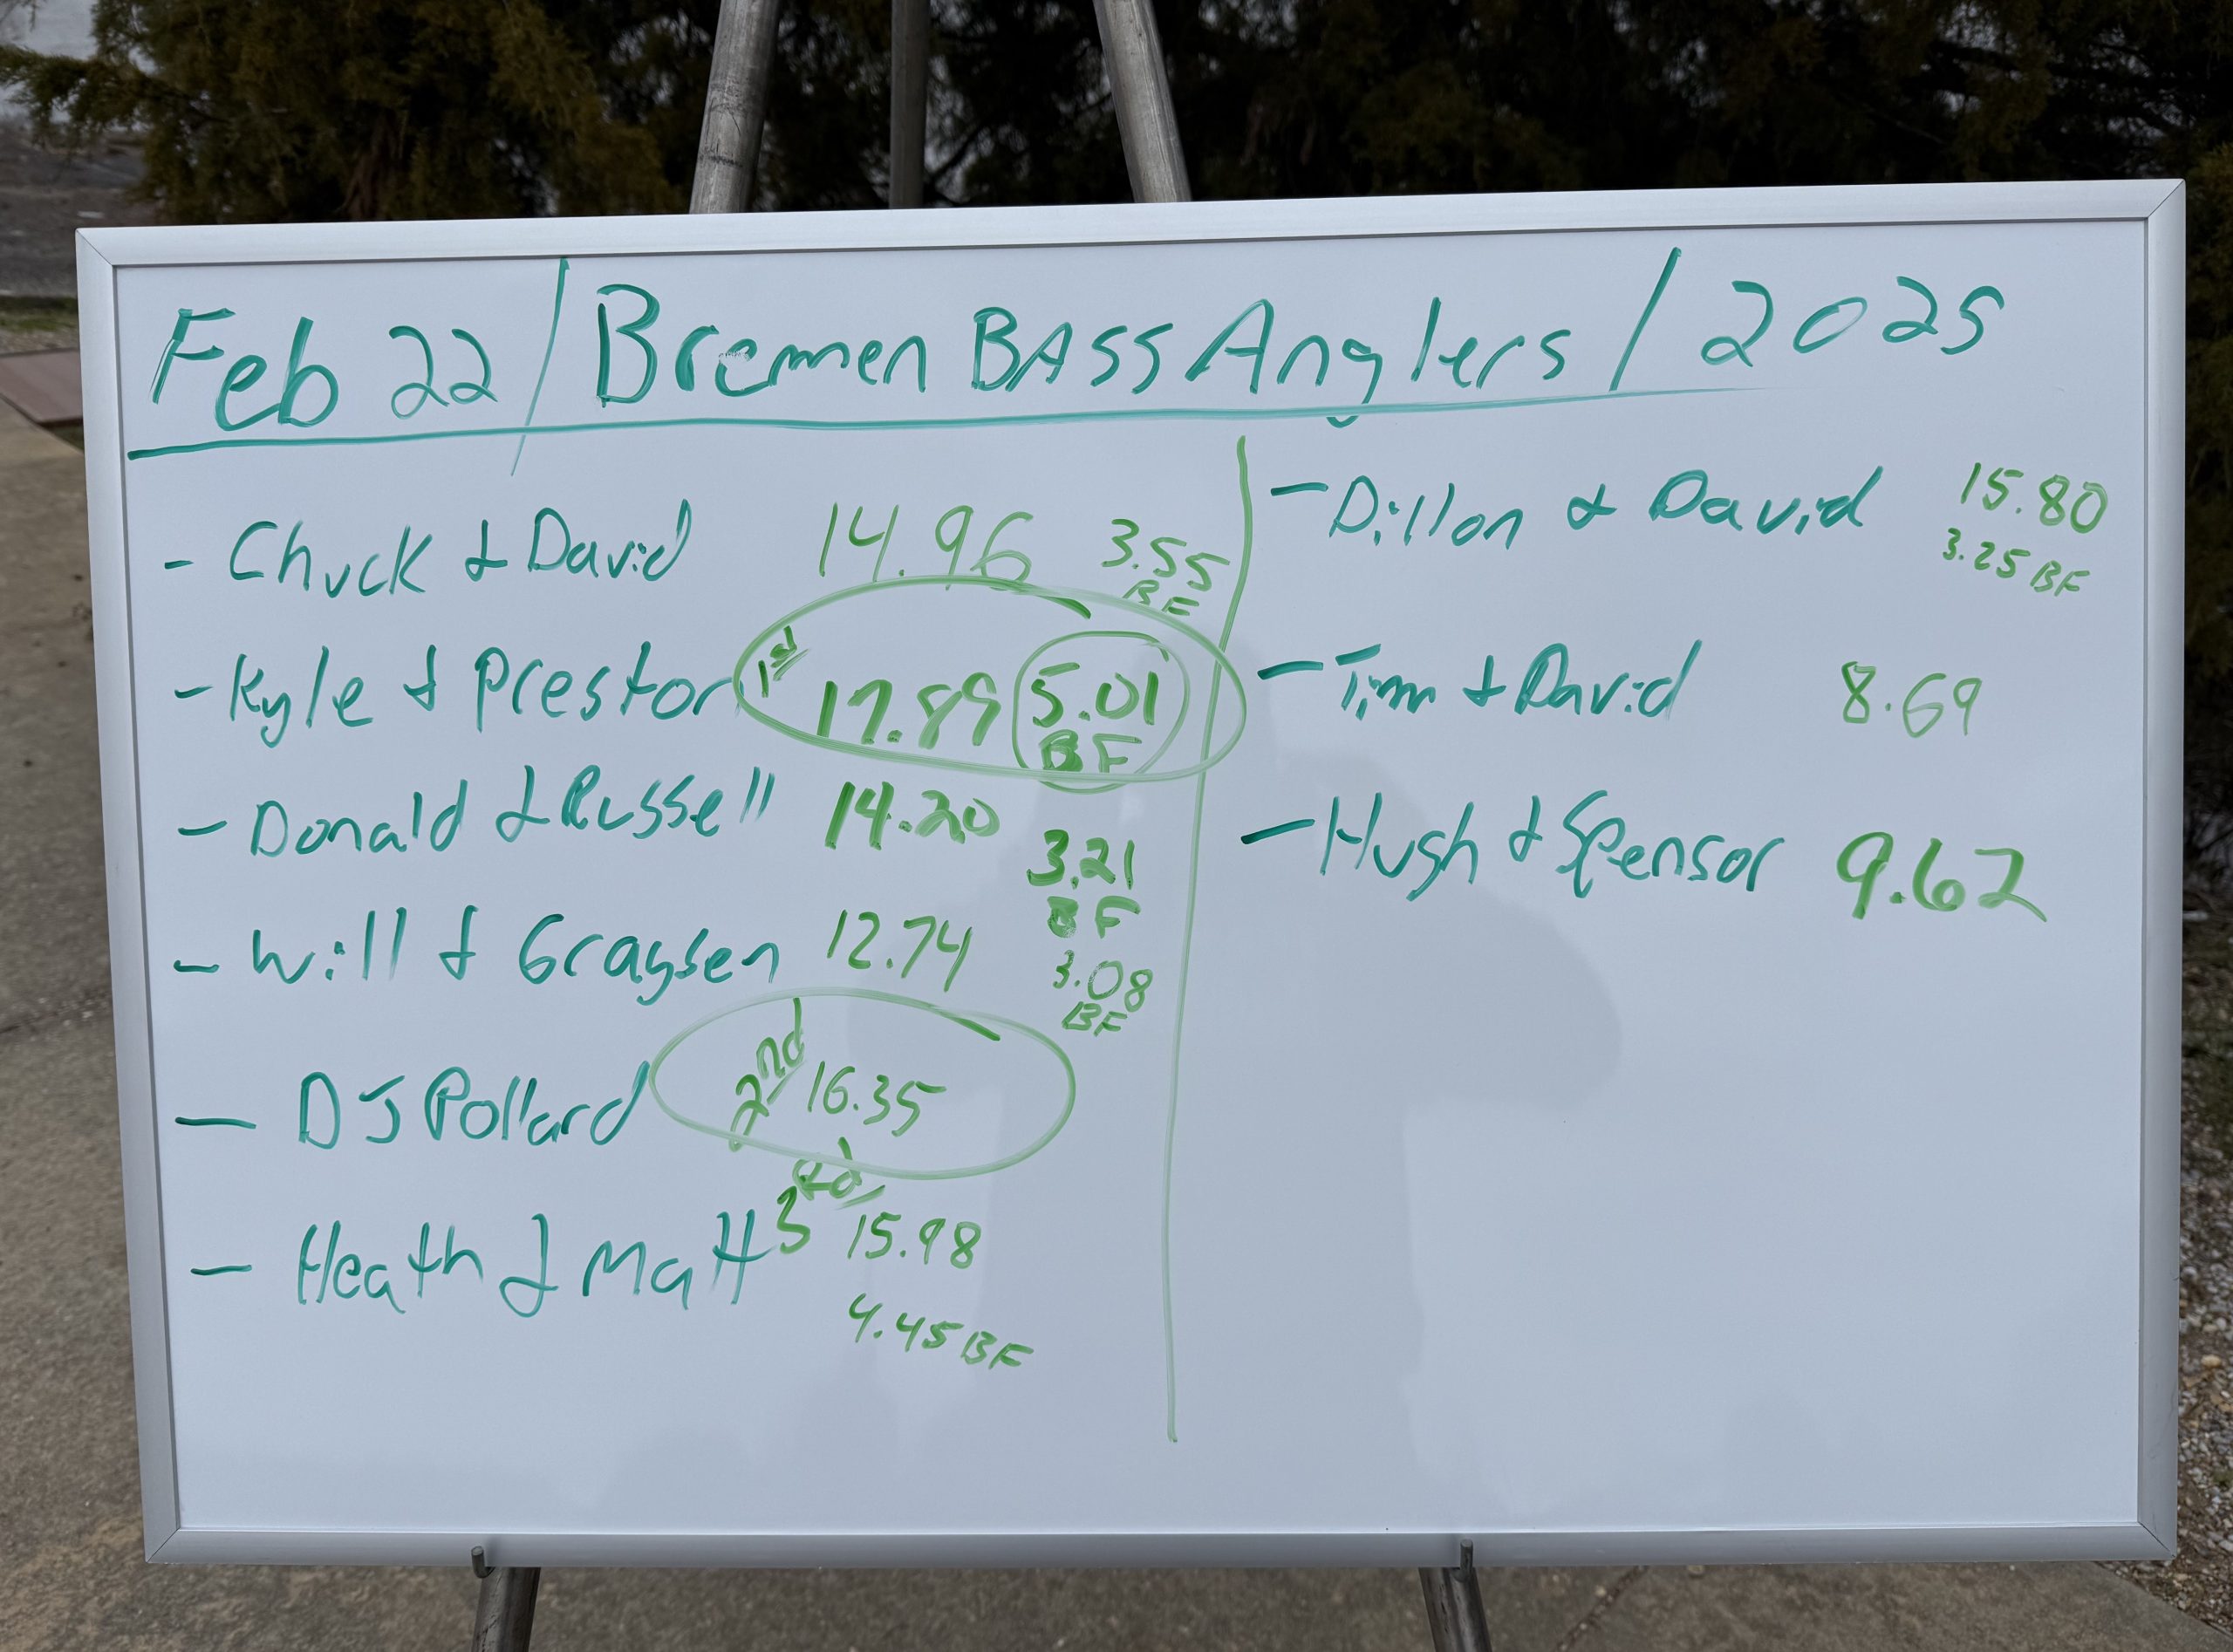 Feb 22 / Bremen BASS Anglers / 2025
- Chuck & David 14.96 3.55 BF
- Kyle & Preston 1st 17.89 5.01 BF
- Donald & Russell 14.20 3.21 BF
- Will & Graysen 12.74 3.08 BF
- DJ Pollard 2nd 16.35
- Heath & Matt 3rd 15.98
4.45 BF
- Dillon & David 15.80
3.25 BF
- Tim & David 8.69
- Hugh & Spensor 9.62